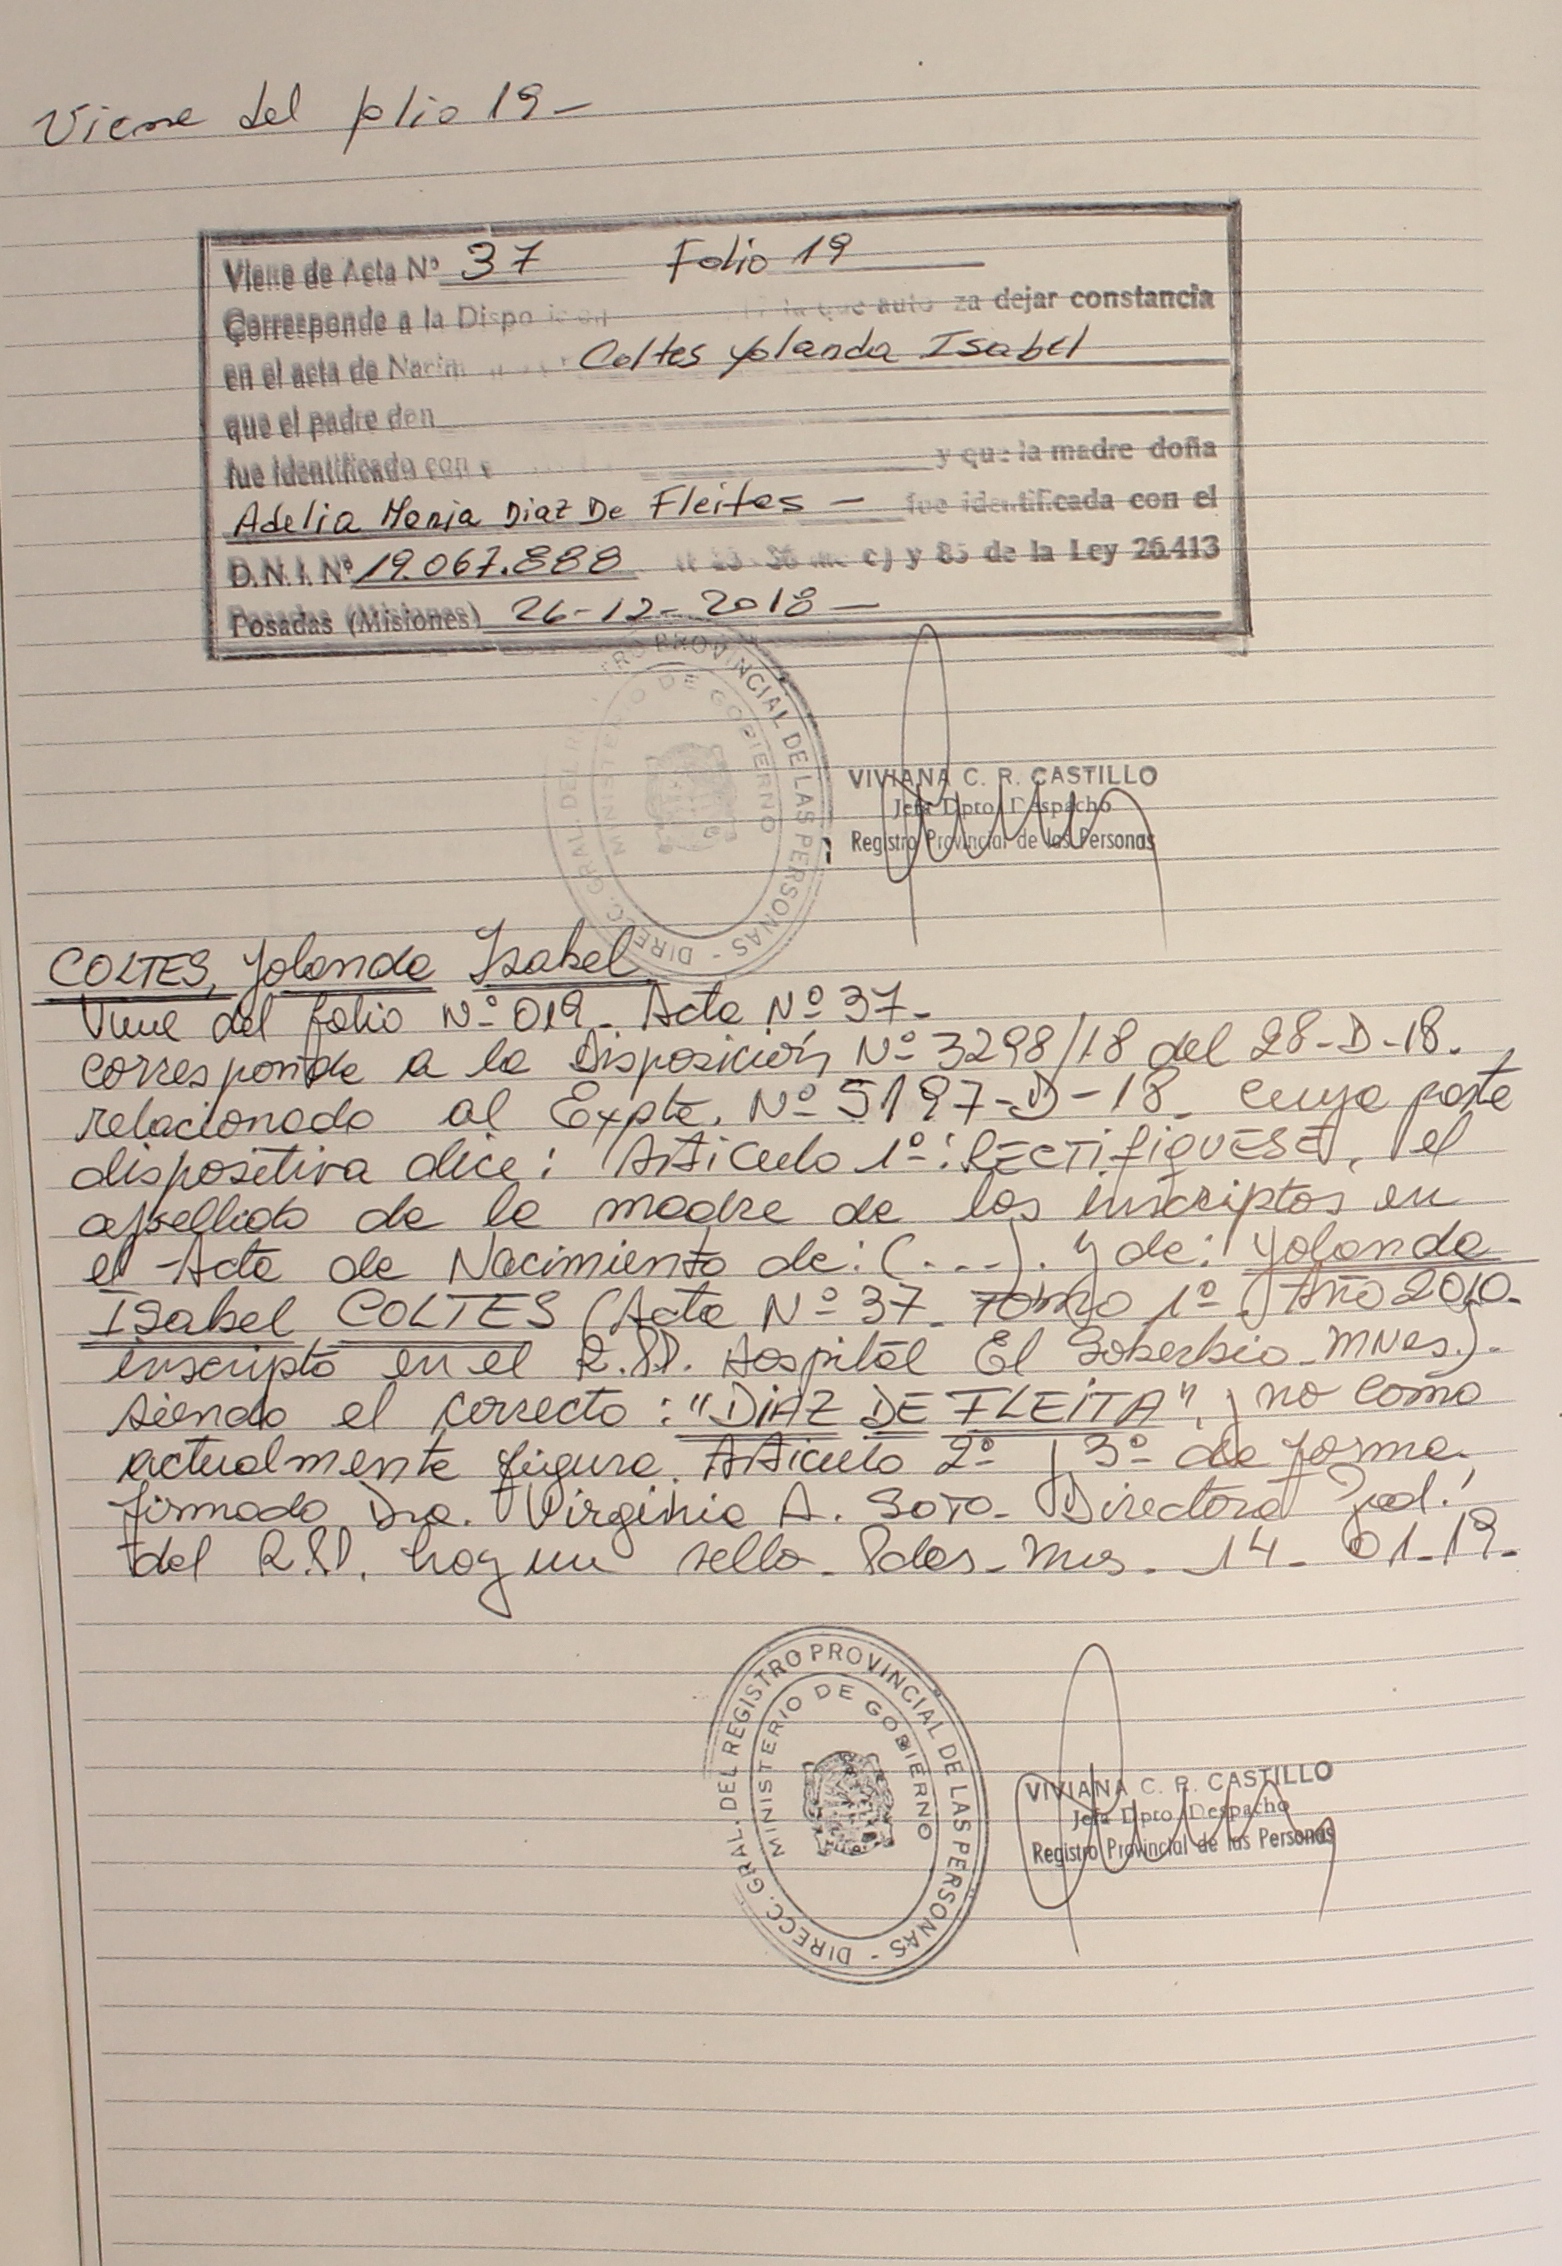 Viene del folio 19-
Viene de Acta Nº 37 Folio 19
Corresponde a la Dispo la que auto za dejar constancia
en el acta de Nacim Coltes Yolanda Isabel
que el padre don
fue identificado con y que la madre doña
Adelia Maria Diaz De Fleites - fue identificada con el
D.N.I. Nº 19.067.888 c) y 85 de la Ley 26.413
Posadas (Misiones) 26-12-2018-
DIRECC. GRAL. DEL RE TRO PROVINCIAL DE LAS PERSONAS -
MINISTERIO DE GOBIERNO
VIVIANA C. R. CASTILLO
Jefa Dpto. Despacho
Registro Provincial de las Personas
COLTES, Yolanda Isabel
Viene del folio Nº 019- Acta Nº 37-
corresponde a la Disposición Nº 3298/18 del 28-D-18.
relacionado al Expte. Nº 5197-D-18- cuya parte
dispositiva dice: Articulo 1º: RECTIFIQUESE, el
apellido de la madre de los inscriptos en
el Acta de Nacimiento de: (...). y de: Yolanda
Isabel COLTES (Acta Nº 37- Tomo 1º. Año 2010.
inscripto en el R.P.P. Hospital El Soberbio-MNES).
siendo el correcto: "DIAZ DE FLEITA", y no como
actualmente figura. Articulo 2º y 3º de forma.
firmado Dra. Virginia A. Soto- Directora Gral.
del R.P.P. hay un sello- Pdas-Mnes. 14-01-19-
DIRECC. GRAL. DEL REGISTRO PROVINCIAL DE LAS PERSONAS -
MINISTERIO DE GOBIERNO
VIVIANA C. R. CASTILLO
Jefa Dpto. Despacho
Registro Provincial de las Personas